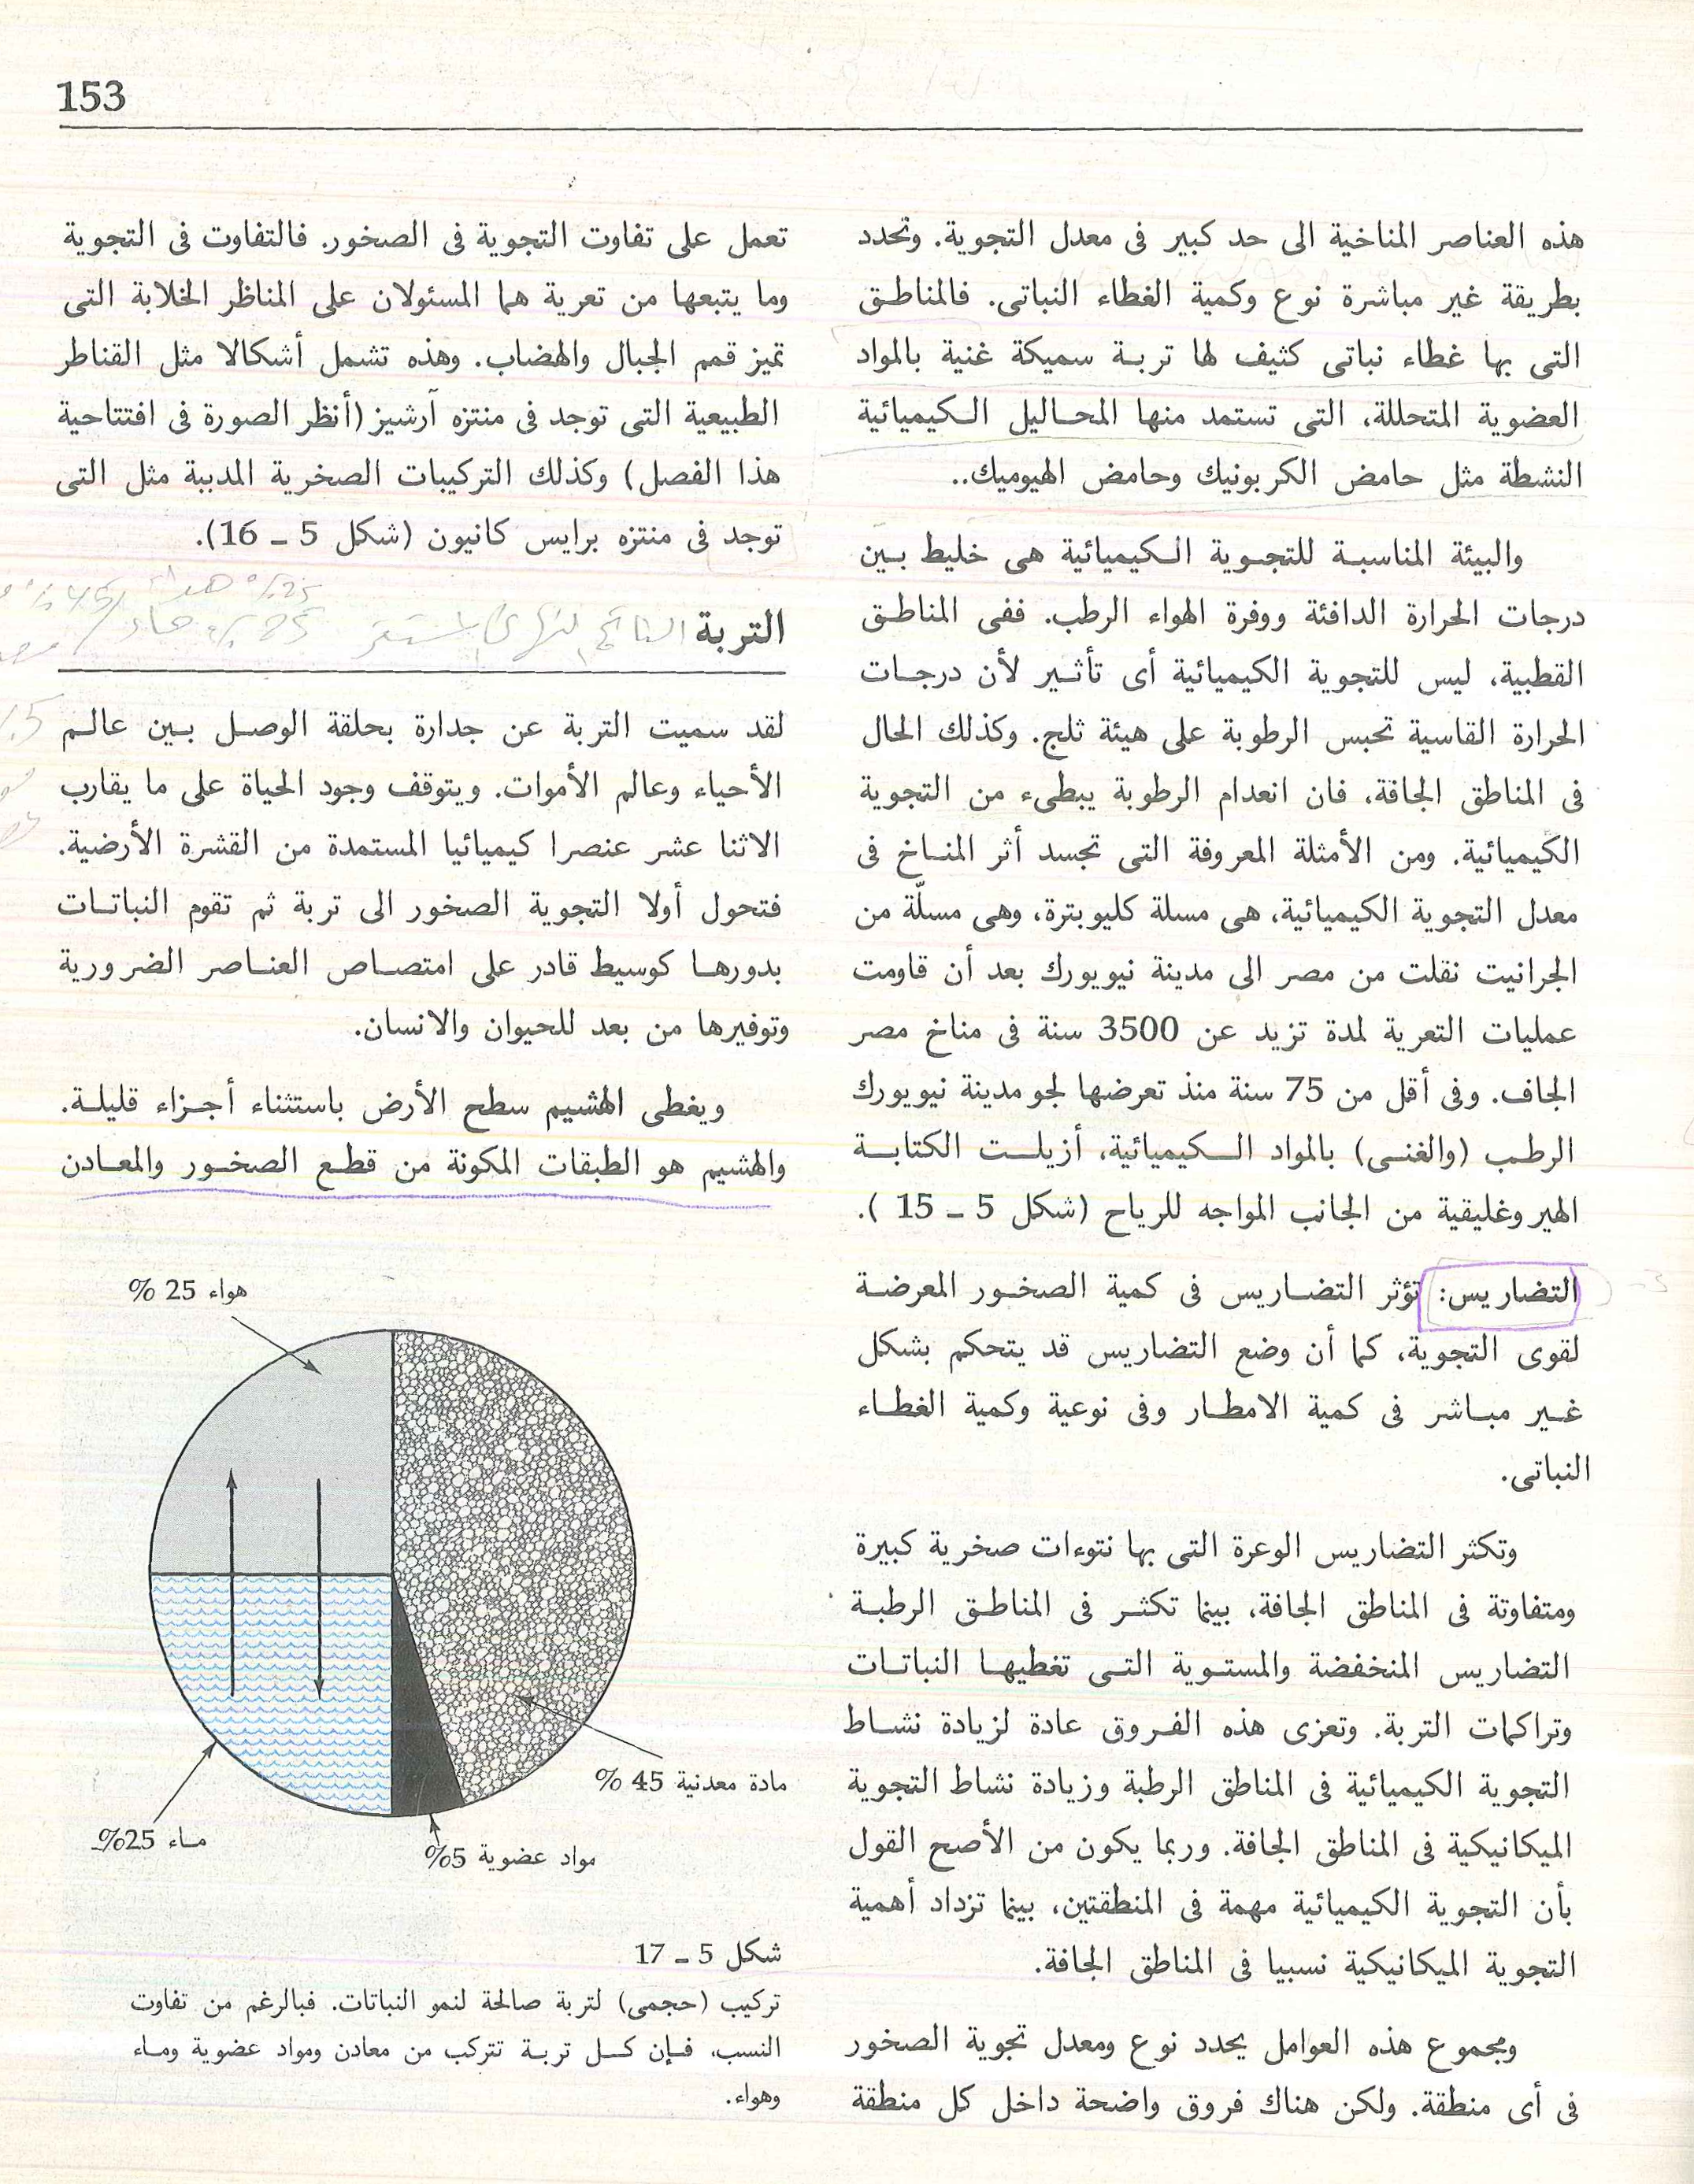 153
هذه العناصر المناخية الى حد كبير فى معدل التجوية. وتحدد
بطريقة غير مباشرة نوع وكمية الغطاء النباتى. فالمناطق
التى بها غطاء نباتى كثيف لها تربة سميكة غنية بالمواد
العضوية المتحللة، التى تستمد منها المحاليل الكيميائية
النشطة مثل حامض الكربونيك وحامض الهيوميك..
والبيئة المناسبة للتجوية الكيميائية هى خليط بين
درجات الحرارة الدافئة ووفرة الهواء الرطب. ففى المناطق
القطبية، ليس للتجوية الكيميائية أى تأثير لأن درجات
الحرارة القاسية تحبس الرطوبة على هيئة ثلج. وكذلك الحال
فى المناطق الجافة، فان انعدام الرطوبة يبطىء من التجوية
الكيميائية. ومن الأمثلة المعروفة التى تجسد أثر المناخ فى
معدل التجوية الكيميائية، هى مسلة كليوبترة، وهى مسلّة من
الجرانيت نقلت من مصر الى مدينة نيويورك بعد أن قاومت
عمليات التعرية لمدة تزيد عن 3500 سنة فى مناخ مصر
الجاف. وفى أقل من 75 سنة منذ تعرضها لجو مدينة نيويورك
الرطب (والغنى) بالمواد الكيميائية، أزيلت الكتابة
الهيروغليفية من الجانب المواجه للرياح (شكل 5 ـ 15 ).
التضاريس: تؤثر التضاريس فى كمية الصخور المعرضة
لقوى التجوية، كما أن وضع التضاريس قد يتحكم بشكل
غير مباشر فى كمية الامطار وفى نوعية وكمية الغطاء
النباتى.
وتكثر التضاريس الوعرة التى بها نتوءات صخرية كبيرة
ومتفاوتة فى المناطق الجافة، بينما تكثر فى المناطق الرطبة
التضاريس المنخفضة والمستوية التى تغطيها النباتات
وتراكمات التربة. وتعزى هذه الفروق عادة لزيادة نشاط
التجوية الكيميائية فى المناطق الرطبة وزيادة نشاط التجوية
الميكانيكية فى المناطق الجافة. وربما يكون من الأصح القول
بأن التجوية الكيميائية مهمة فى المنطقتين، بينما تزداد أهمية
التجوية الميكانيكية نسبيا فى المناطق الجافة.
ومجموع هذه العوامل يحدد نوع ومعدل تجوية الصخور
فى أى منطقة. ولكن هناك فروق واضحة داخل كل منطقة
تعمل على تفاوت التجوية فى الصخور. فالتفاوت فى التجوية
وما يتبعها من تعرية هما المسئولان على المناظر الخلابة التى
تميز قمم الجبال والهضاب. وهذه تشمل أشكالا مثل القناطر
الطبيعية التى توجد فى منتزه آرشيز (أنظر الصورة فى افتتاحية
هذا الفصل) وكذلك التركيبات الصخرية المدببة مثل التى
توجد فى منتزه برايس كانيون (شكل 5 ـ 16).
25% هواء
التربة
25% ماء
لقد سميت التربة عن جدارة بحلقة الوصل بين عالم
الأحياء وعالم الأموات. ويتوقف وجود الحياة على ما يقارب
الاثنا عشر عنصرا كيميائيا المستمدة من القشرة الأرضية.
فتحول أولا التجوية الصخور الى تربة ثم تقوم النباتات
بدورها كوسيط قادر على امتصاص العناصر الضرورية
وتوفيرها من بعد للحيوان والانسان.
ويغطى الهشيم سطح الأرض باستثناء أجزاء قليلة.
والهشيم هو الطبقات المكونة من قطع الصخور والمعادن
هواء 25 %
مادة معدنية 45 %
ماء 25%
مواد عضوية 5%
شكل 5 ـ 17
تركيب (حجمى) لتربة صالحة لنمو النباتات. فبالرغم من تفاوت
النسب، فإن كل تربة تتركب من معادن ومواد عضوية وماء
وهواء.